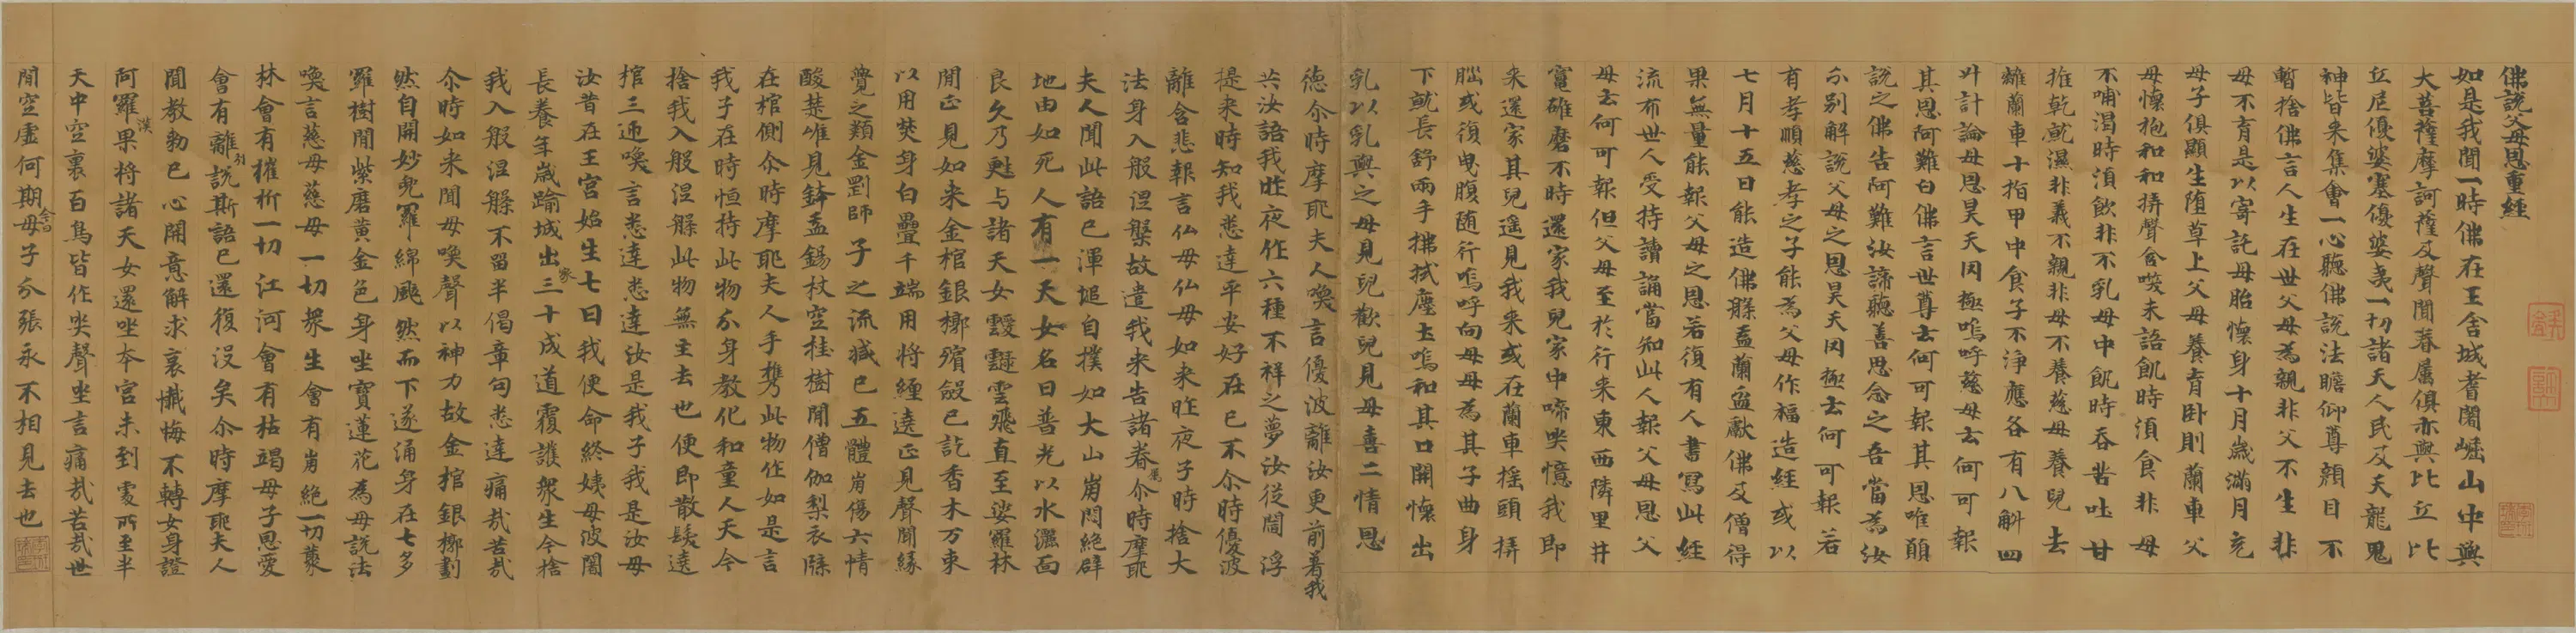 佛說父母恩重經
如是我聞一時佛在王舍城耆闍崛山中與
大菩薩摩訶薩及聲聞眷屬俱亦與比丘比
丘尼優婆塞優婆夷一切諸天人民及天龍鬼
神皆來集會一心聽佛說法瞻仰尊顏目不
暫捨佛言人生在世父母為親非父不生非
母不育是以寄託母胎懷身十月歲滿月充
母子俱顯生墮草上父母養育卧則蘭車父
母懷抱和和弄聲含唉未語飢時須食非母
不哺渴時須飲非不乳母中飢時吞苦吐甘
推乾就濕非義不親非母不養慈母養兒去
離蘭車十指甲中食子不淨應各有八斛四
斗計論母恩昊天罔極嗚呼慈母云何可報
其恩阿難白佛言世尊云何可報其恩唯願
說之佛告阿難汝諦聽善思念之吾當為汝
分別解說父母之恩昊天罔極云何可報若
有孝順慈孝之子能為父母作福造經或以
七月十五日能造佛槃盂蘭盆獻佛及僧得
果無量能報父母之恩若復有人書寫此經
流布世人受持讀誦當知此人報父母恩父
母云何可報但父母至於行來東西隣里井
竈碓磨不時還家我兒家中啼哭憶我即
來還家其兒遥見我來或在蘭車摇頭弄
腦或復曳腹随行嗚呼向母母為其子曲身
下就長舒兩手拂拭塵土嗚和其口開懷出
乳以乳與之母見兒歡兒見母喜二情恩
德尒時摩耶夫人喚言優波離汝更前著我
共汝語我昨夜作六種不祥之夢汝從閻浮
提來時知我悉達平安好在已不尒時優波
離含悲報言仏母仏母如來昨夜子時捨大
法身入般涅槃故遣我來告諸眷属尒時摩耶
夫人聞此語已渾塠自撲如大山崩悶絕躃
地由如死人有一天女名曰普光以水灑面
良久乃甦与諸天女靉靆雲飛直至娑羅林
間正見如來金棺銀槨殯斂已訖香木万束
以用焚身白疊千端用將纏遶正見聲聞緣
覺之類金罰師子之流臧已五體崩傷六情
酸楚唯見鉢盂錫杖空挂樹間僧伽梨衣
在棺側尒時摩耶夫人手携此物作如是言
我子在時恒持此物分身教化和童人天今
捨我入般涅槃此物無主去也便即散髮遶
棺三迊喚言悉達悉達汝是我子我是汝母
汝昔在王宮始生七日我便命終姨母波闍
長養年歲踰城出家三十成道覆護衆生今捨
我入般涅槃不留半偈章句悉達痛哉苦哉
尒時如來聞母喚聲以神力故金棺銀槨劃
然自開妙兜羅綿颰然而下遂涌身在七多
羅樹間紫磨黄金色身坐寶蓮花為母說法
喚言慈母慈母一切衆生會有崩絕一切藂
林會有摧折一切江河會有枯竭母子恩愛
會有離別說斯語已還復没矣尒時摩耶夫人
聞教勑已心開意解求哀懺悔不轉女身證
阿羅漢果将諸天女還坐夲宮未到處所至半
天中空裏百鳥皆作哭聲坐言痛哉苦哉世
間空虛何期母子分張永不相見去也